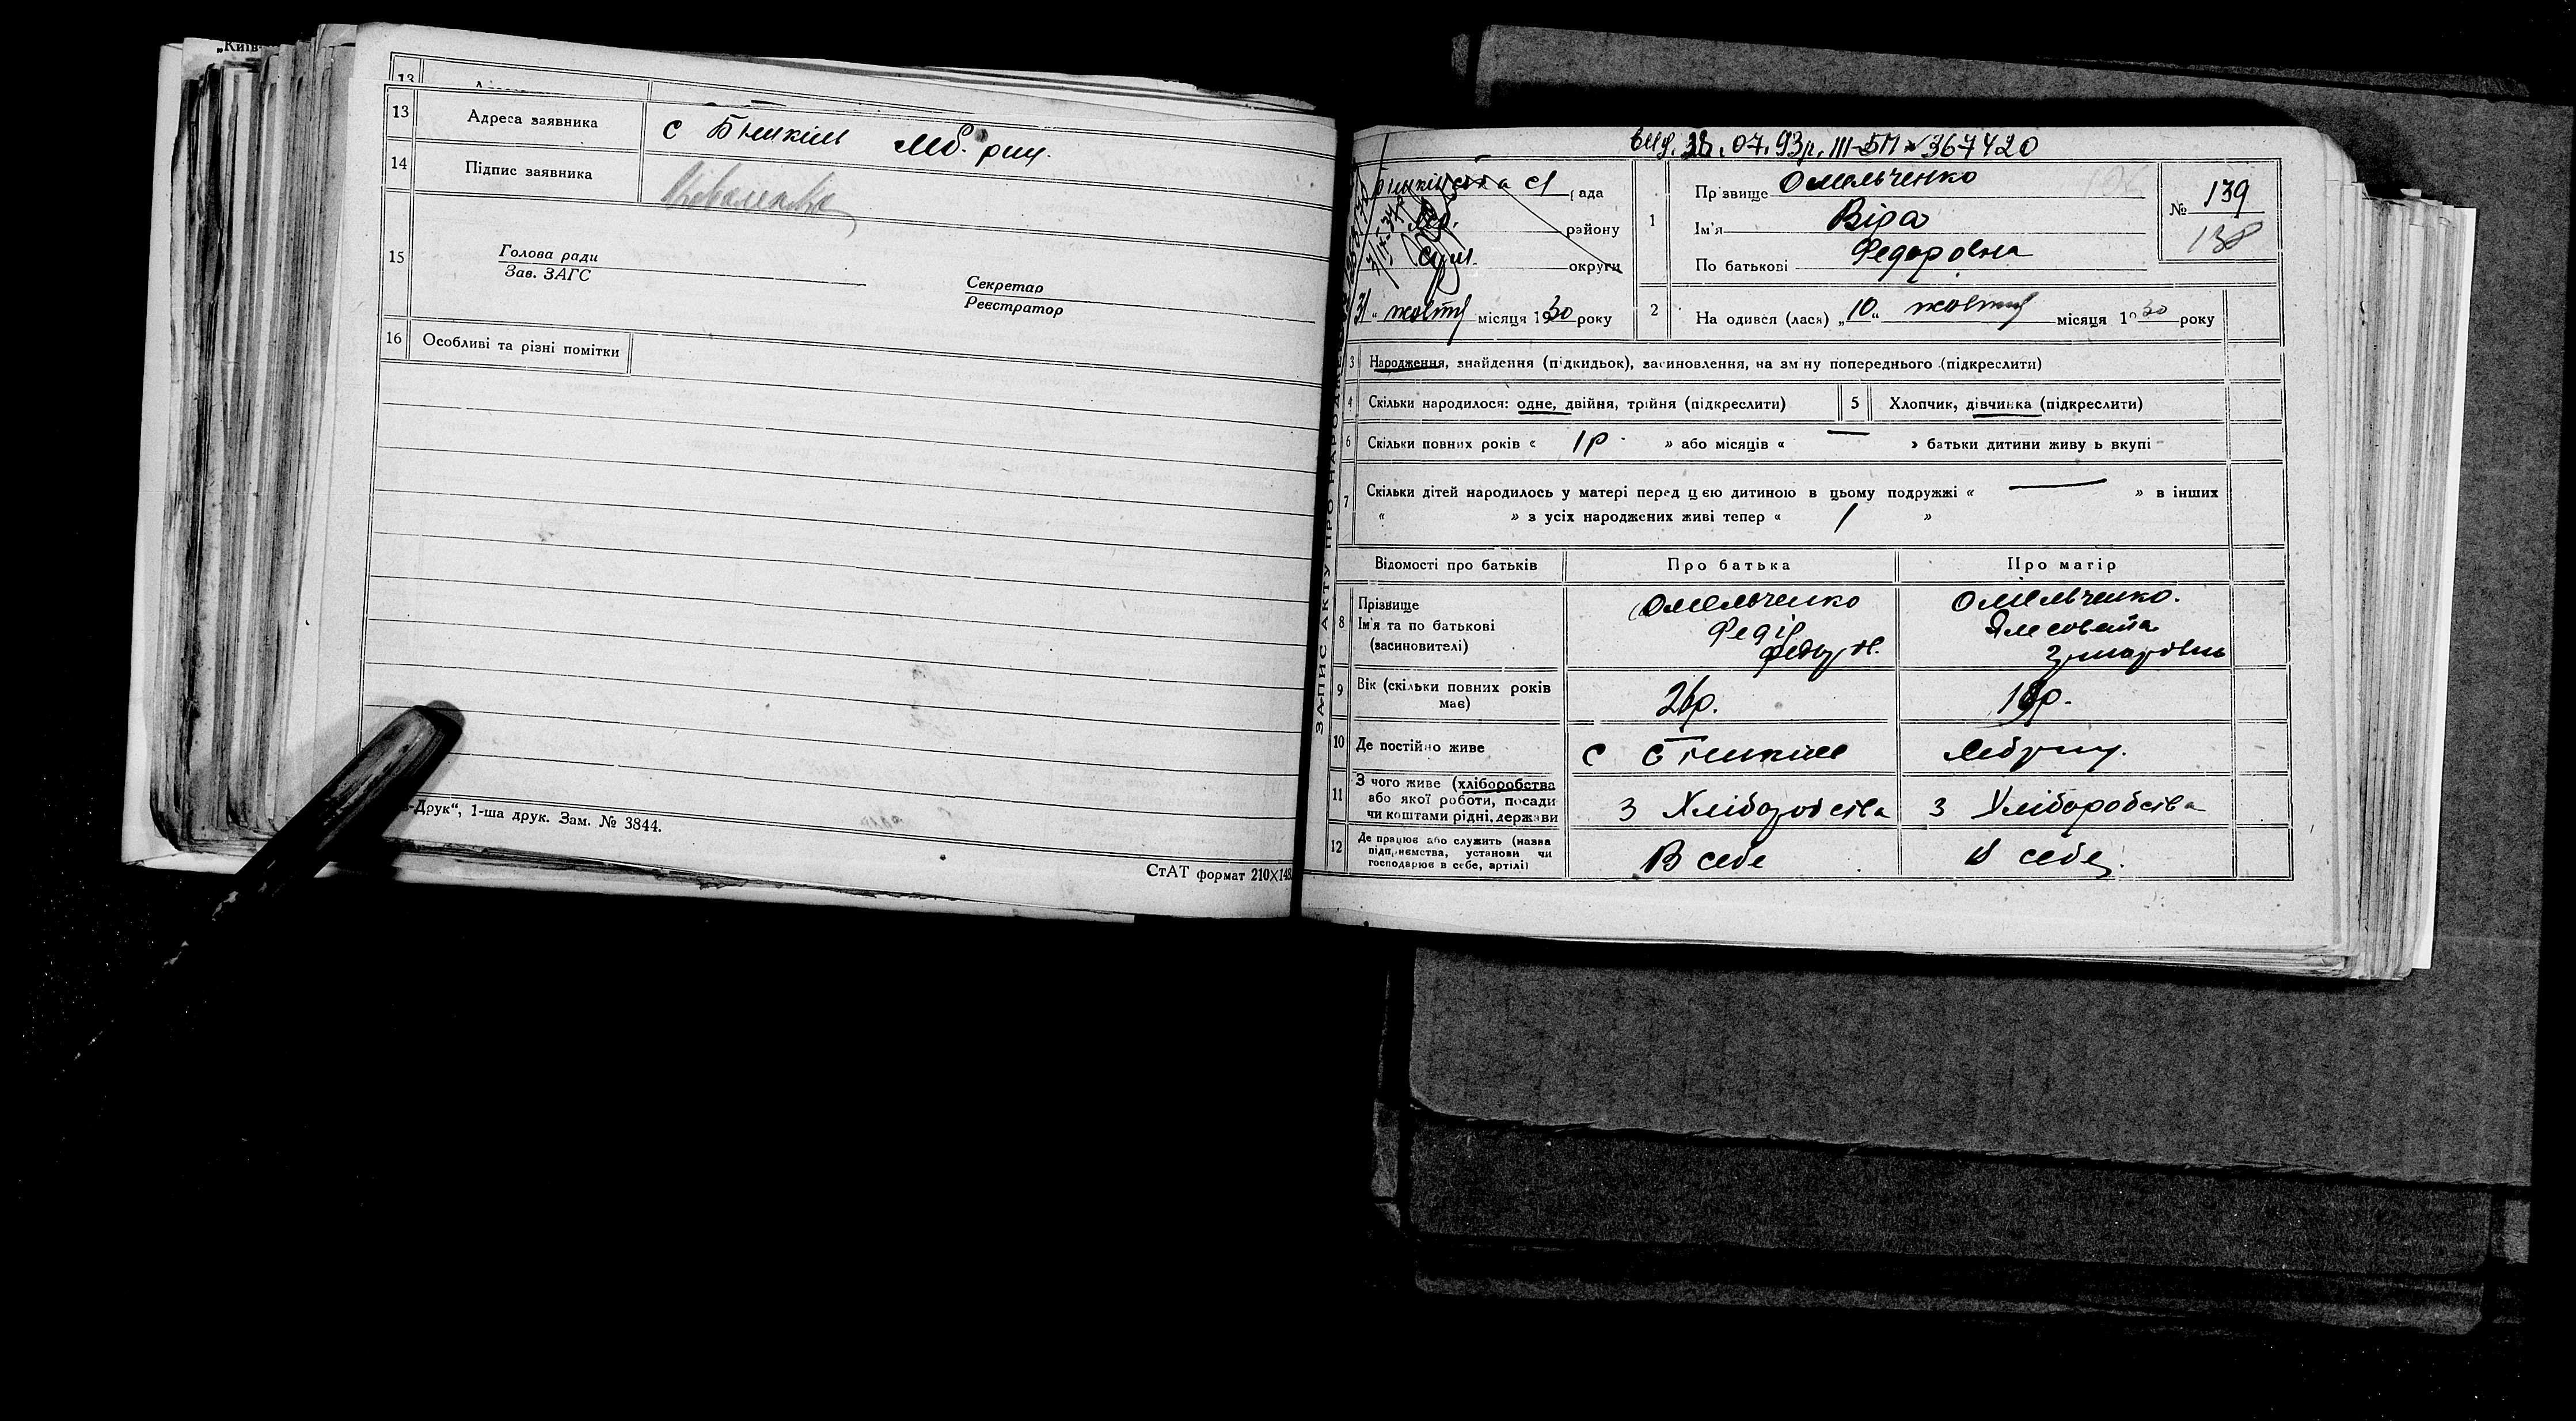 „Київ-
13
13 Адреса заявника с Бишкінь Леб. рищ.
14 Підпис заявника
15 Голова ради
Зав. ЗАГС
Секретар
Реєстратор
16 Особливі та різні помітки
-Друк“, 1-ша друк. Зам. № 3844.
СтАТ формат 210×148
ЗАПИС АКТУ ПРО НАРОДЖЕ
вид. 28.07.93р. III-БП № 367420
рада
Леб. району
Сум. округи
31 " жовтня місяця 1930 року
1 Прізвище Омельченко
Ім'я Віра
По батькові Федоровна
№ 139
138
2 На одився (лася) „10" жовтня місяця 1930 року
3 Народження, знайдення (підкидьок), засиновлення, на зміну попереднього (підкреслити)
4 Скільки народилося: одне, двійня, трійня (підкреслити) 5 Хлопчик, дівчинка (підкреслити)
6 Скільки повних років « 1р. » або місяців « — » батьки дитини живу ь вкупі
7 Скільки дітей народилось у матері перед цією дитиною в цьому подружжі « — » в інших
« » з усіх народжених живі тепер « 1 »
Відомості про батьків Про батька Про матір
8 Прізвище Омельченко Омельченко.
Ім'я та по батькові Федір
(засиновителі) Федор.
9 Вік (скільки повних років має) 26р.
10 Де постійно живе с
11 З чого живе (хліборобства або якої роботи, посади чи коштами рідні, держави з Хліборобства з Хліборобства
12 Де працює або служить (назва підприємства, установи чи господарює в себе, артілі) В себе В себе.